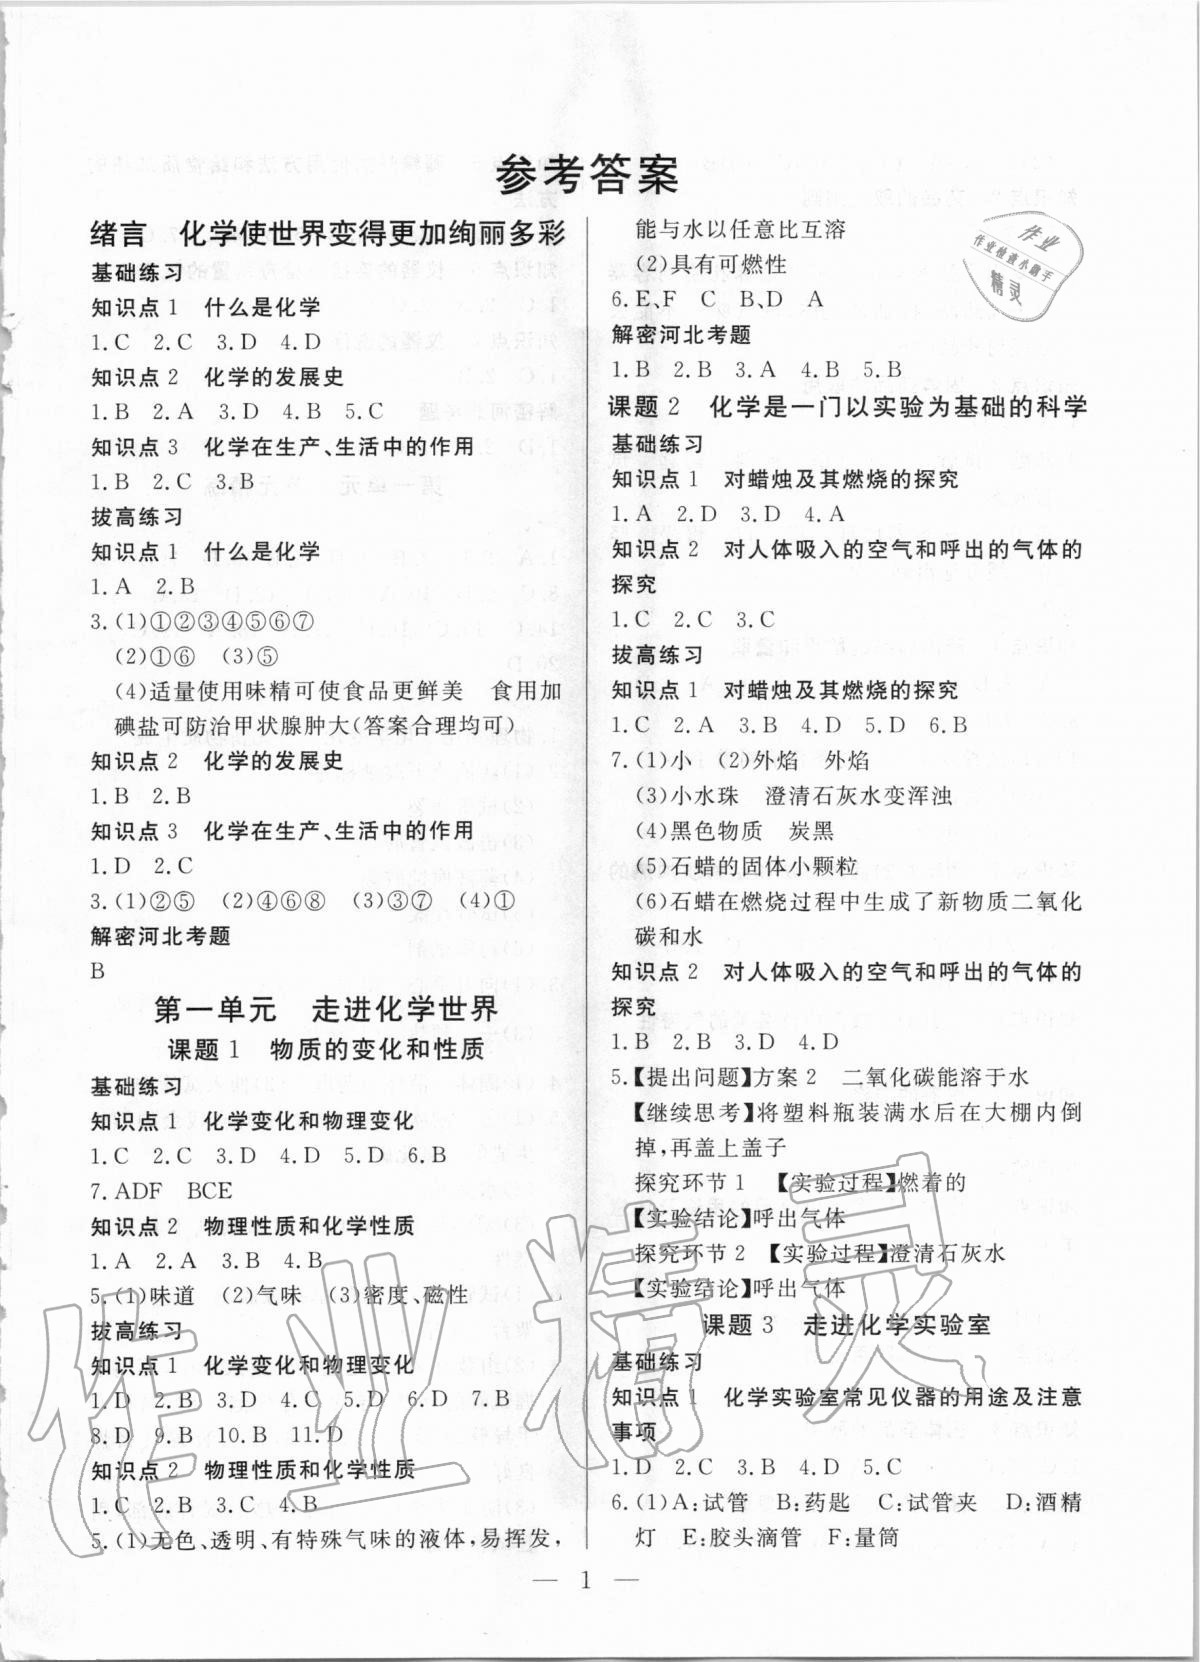 参考答案
绪言　化学使世界变得更加绚丽多彩
基础练习
知识点1　什么是化学
1.C　2.C　3.D　4.D
知识点2　化学的发展史
1.B　2.A　3.D　4.B　5.C
知识点3　化学在生产、生活中的作用
1.B　2.C　3.B
拔高练习
知识点1　什么是化学
1.A　2.B
3.(1)①②③④⑤⑥⑦
(2)①⑥　(3)⑤
(4)适量使用味精可使食品更鲜美　食用加
碘盐可防治甲状腺肿大(答案合理均可)
知识点2　化学的发展史
1.B　2.B
知识点3　化学在生产、生活中的作用
1.D　2.C
3.(1)②⑤　(2)④⑥⑧　(3)③⑦　(4)①
解密河北考题
B
第一单元　走进化学世界
课题1　物质的变化和性质
基础练习
知识点1　化学变化和物理变化
1.C　2.C　3.D　4.D　5.D　6.B
7.ADF　BCE
知识点2　物理性质和化学性质
1.A　2.A　3.D　4.B
5.(1)味道　(2)气味　(3)密度、磁性
拔高练习
知识点1　化学变化和物理变化
1.D　2.B　3.D　4.C　5.D　6.D　7.B
8.D　9.B　10.B　11.D
知识点2　物理性质和化学性质
1.C　2.B　3.C　4.B
5.(1)无色、透明、有特殊气味的液体,易挥发,
能与水以任意比互溶
(2)具有可燃性
6.E、F　C　B、D　A
解密河北考题
1.B　2.B　3.A　4.B　5.B
课题2　化学是一门以实验为基础的科学
基础练习
知识点1　对蜡烛及其燃烧的探究
1.A　2.D　3.D　4.A
知识点2　对人体吸入的空气和呼出的气体的
探究
1.C　2.C　3.C
拔高练习
知识点1　对蜡烛及其燃烧的探究
1.C　2.A　3.B　4.D　5.D　6.B
7.(1)小　(2)外焰　外焰
(3)小水珠　澄清石灰水变浑浊
(4)黑色物质　炭黑
(5)石蜡的固体小颗粒
(6)石蜡在燃烧过程中生成了新物质二氧化
碳和水
知识点2　对人体吸入的空气和呼出的气体的
探究
1.B　2.B　3.D　4.D
5.【提出问题】方案2　二氧化碳能溶于水
【继续思考】将塑料瓶装满水后在大棚内倒
掉,再盖上盖子
探究环节1　【实验过程】燃着的
【实验结论】呼出气体
探究环节2　【实验过程】澄清石灰水
【实验结论】呼出气体
课题3　走进化学实验室
基础练习
知识点1　化学实验室常见仪器的用途及注意
事项
1.D　2.C　3.D　4.D　5.C
6.(1)A:试管　B:药匙　C:试管夹　D:酒精
灯　E:胶头滴管　F:量筒
— 1 —
作业
作业检查小助手
精灵
作业精灵